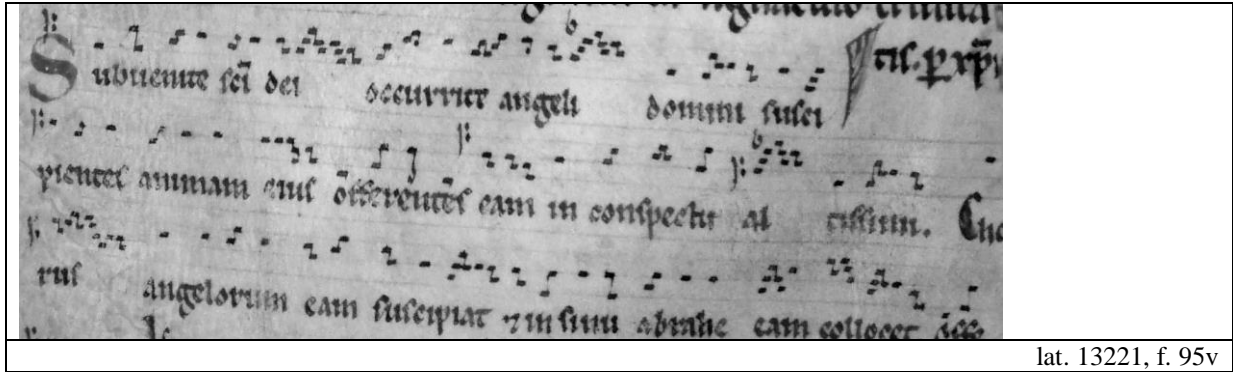 Subuenite sc̄i dei occurrite angeli domini susci
tis. p xp̄m
pientes animam eius offerentes eam in conspectu al tissimi. Cho
rus angelorum eam suscipiat ⁊ in sinu abrahe eam collocet Offe
lat. 13221, f. 95v